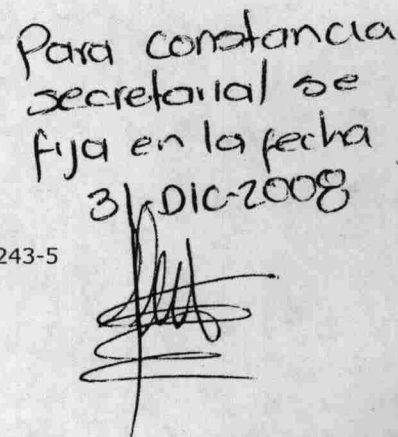 Para constancia
secretarial se
fija en la fecha
31 DIC-2008
243-5